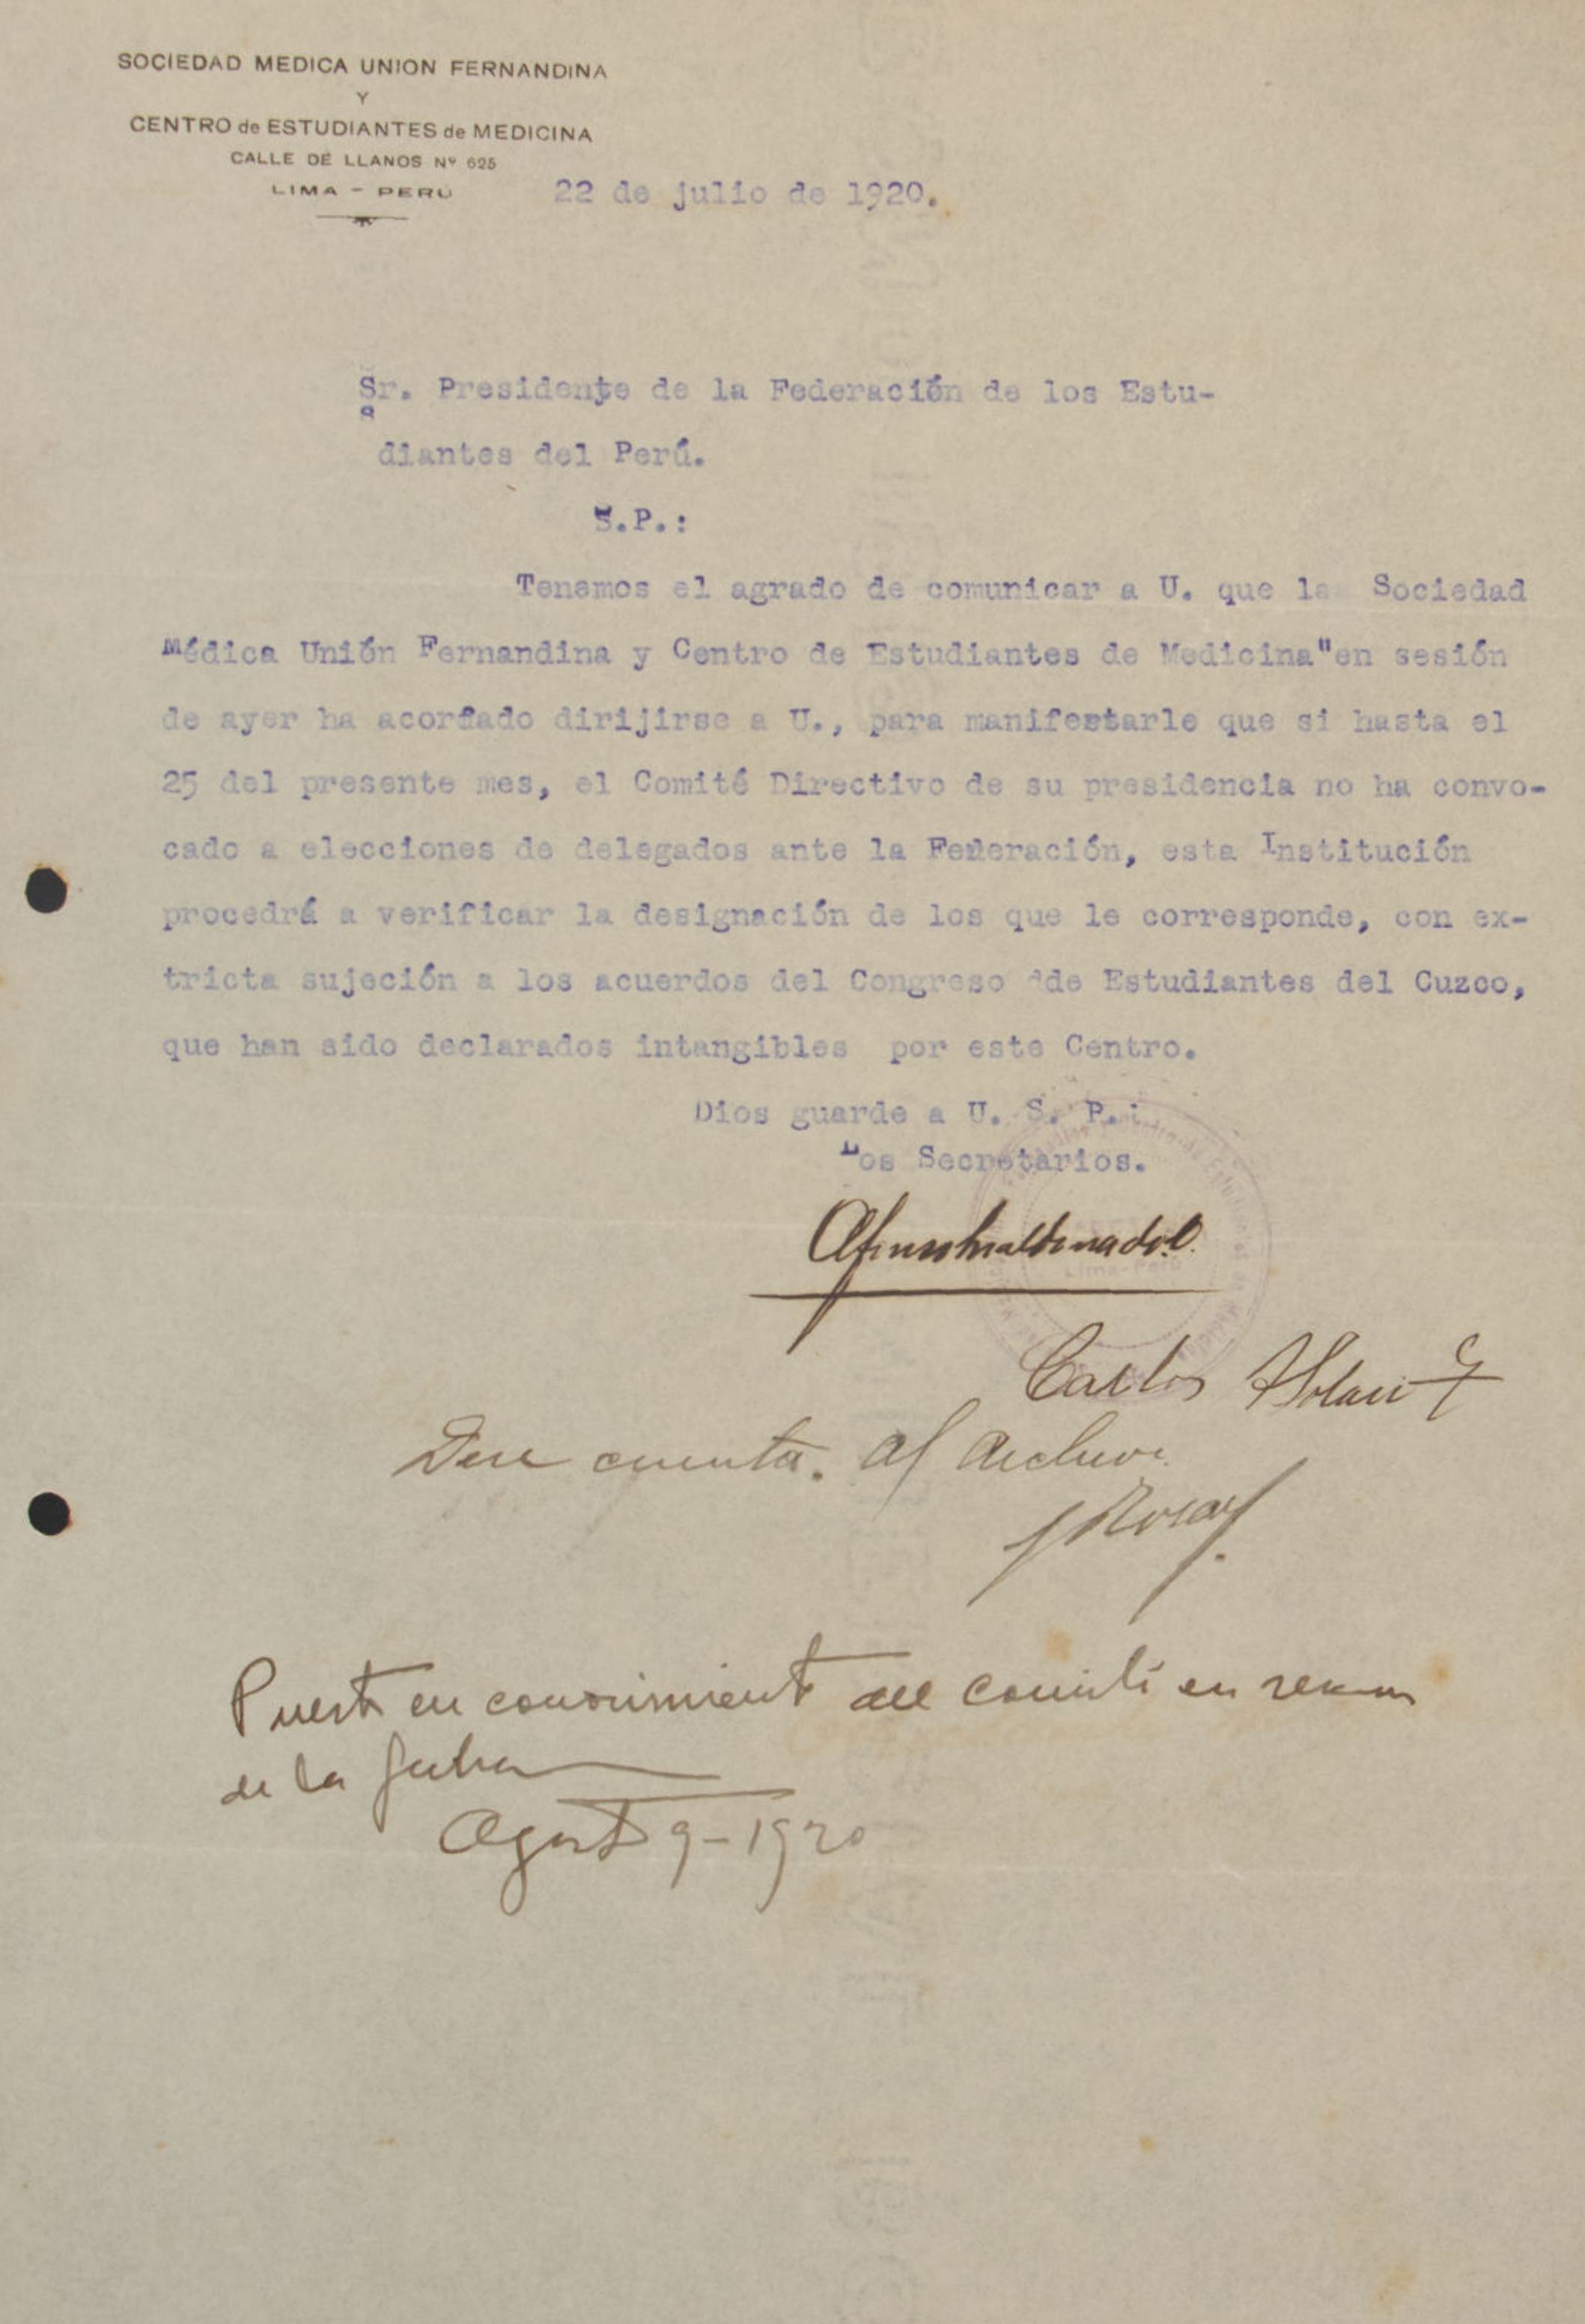 SOCIEDAD MEDICA UNION FERNANDINA
Y
CENTRO de ESTUDIANTES de MEDICINA
CALLE DE LLANOS Nº 625
LIMA - PERU
22 de julio de 1920.
Sr. Presidente de la Federación de los Estu-
diantes del Perú.
S.P.:
Tenemos el agrado de comunicar a U. que la Sociedad
Médica Unión Fernandina y Centro de Estudiantes de Medicina"en sesión
de ayer ha acordado dirijirse a U., para manifestarle que si hasta el
25 del presente mes, el Comité Directivo de su presidencia no ha convo-
cado a elecciones de delegados ante la Federación, esta Institución
procedrá a verificar la designación de los que le corresponde, con ex-
tricta sujeción a los acuerdos del Congreso dde Estudiantes del Cuzco,
que han sido declarados intangibles por este Centro.
Dios guarde a U. S. P.:
Los Secretarios.
Carlos
Dese cuenta. al archivo.
Puesto en conocimiento del comité en sesion
de la fecha
Agosto 9-1920